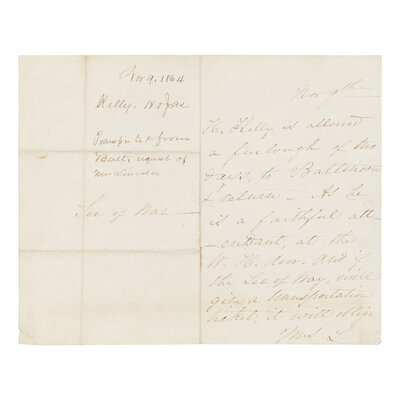 Nov 9, 1864
Kelly.
to & from
Balt. request of
Mrs Lincoln
Sec of War
Nov 9th
H. Kelly is allowed
a furlough of two
days, to Baltimore
& return - As he
is a faithful att-
-endant, at the
W. H. door. And if
the Sec of War, will
give a transportation
ticket, it will oblige
Mrs L